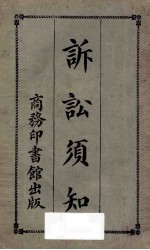 訴訟須知
商務印書館出版